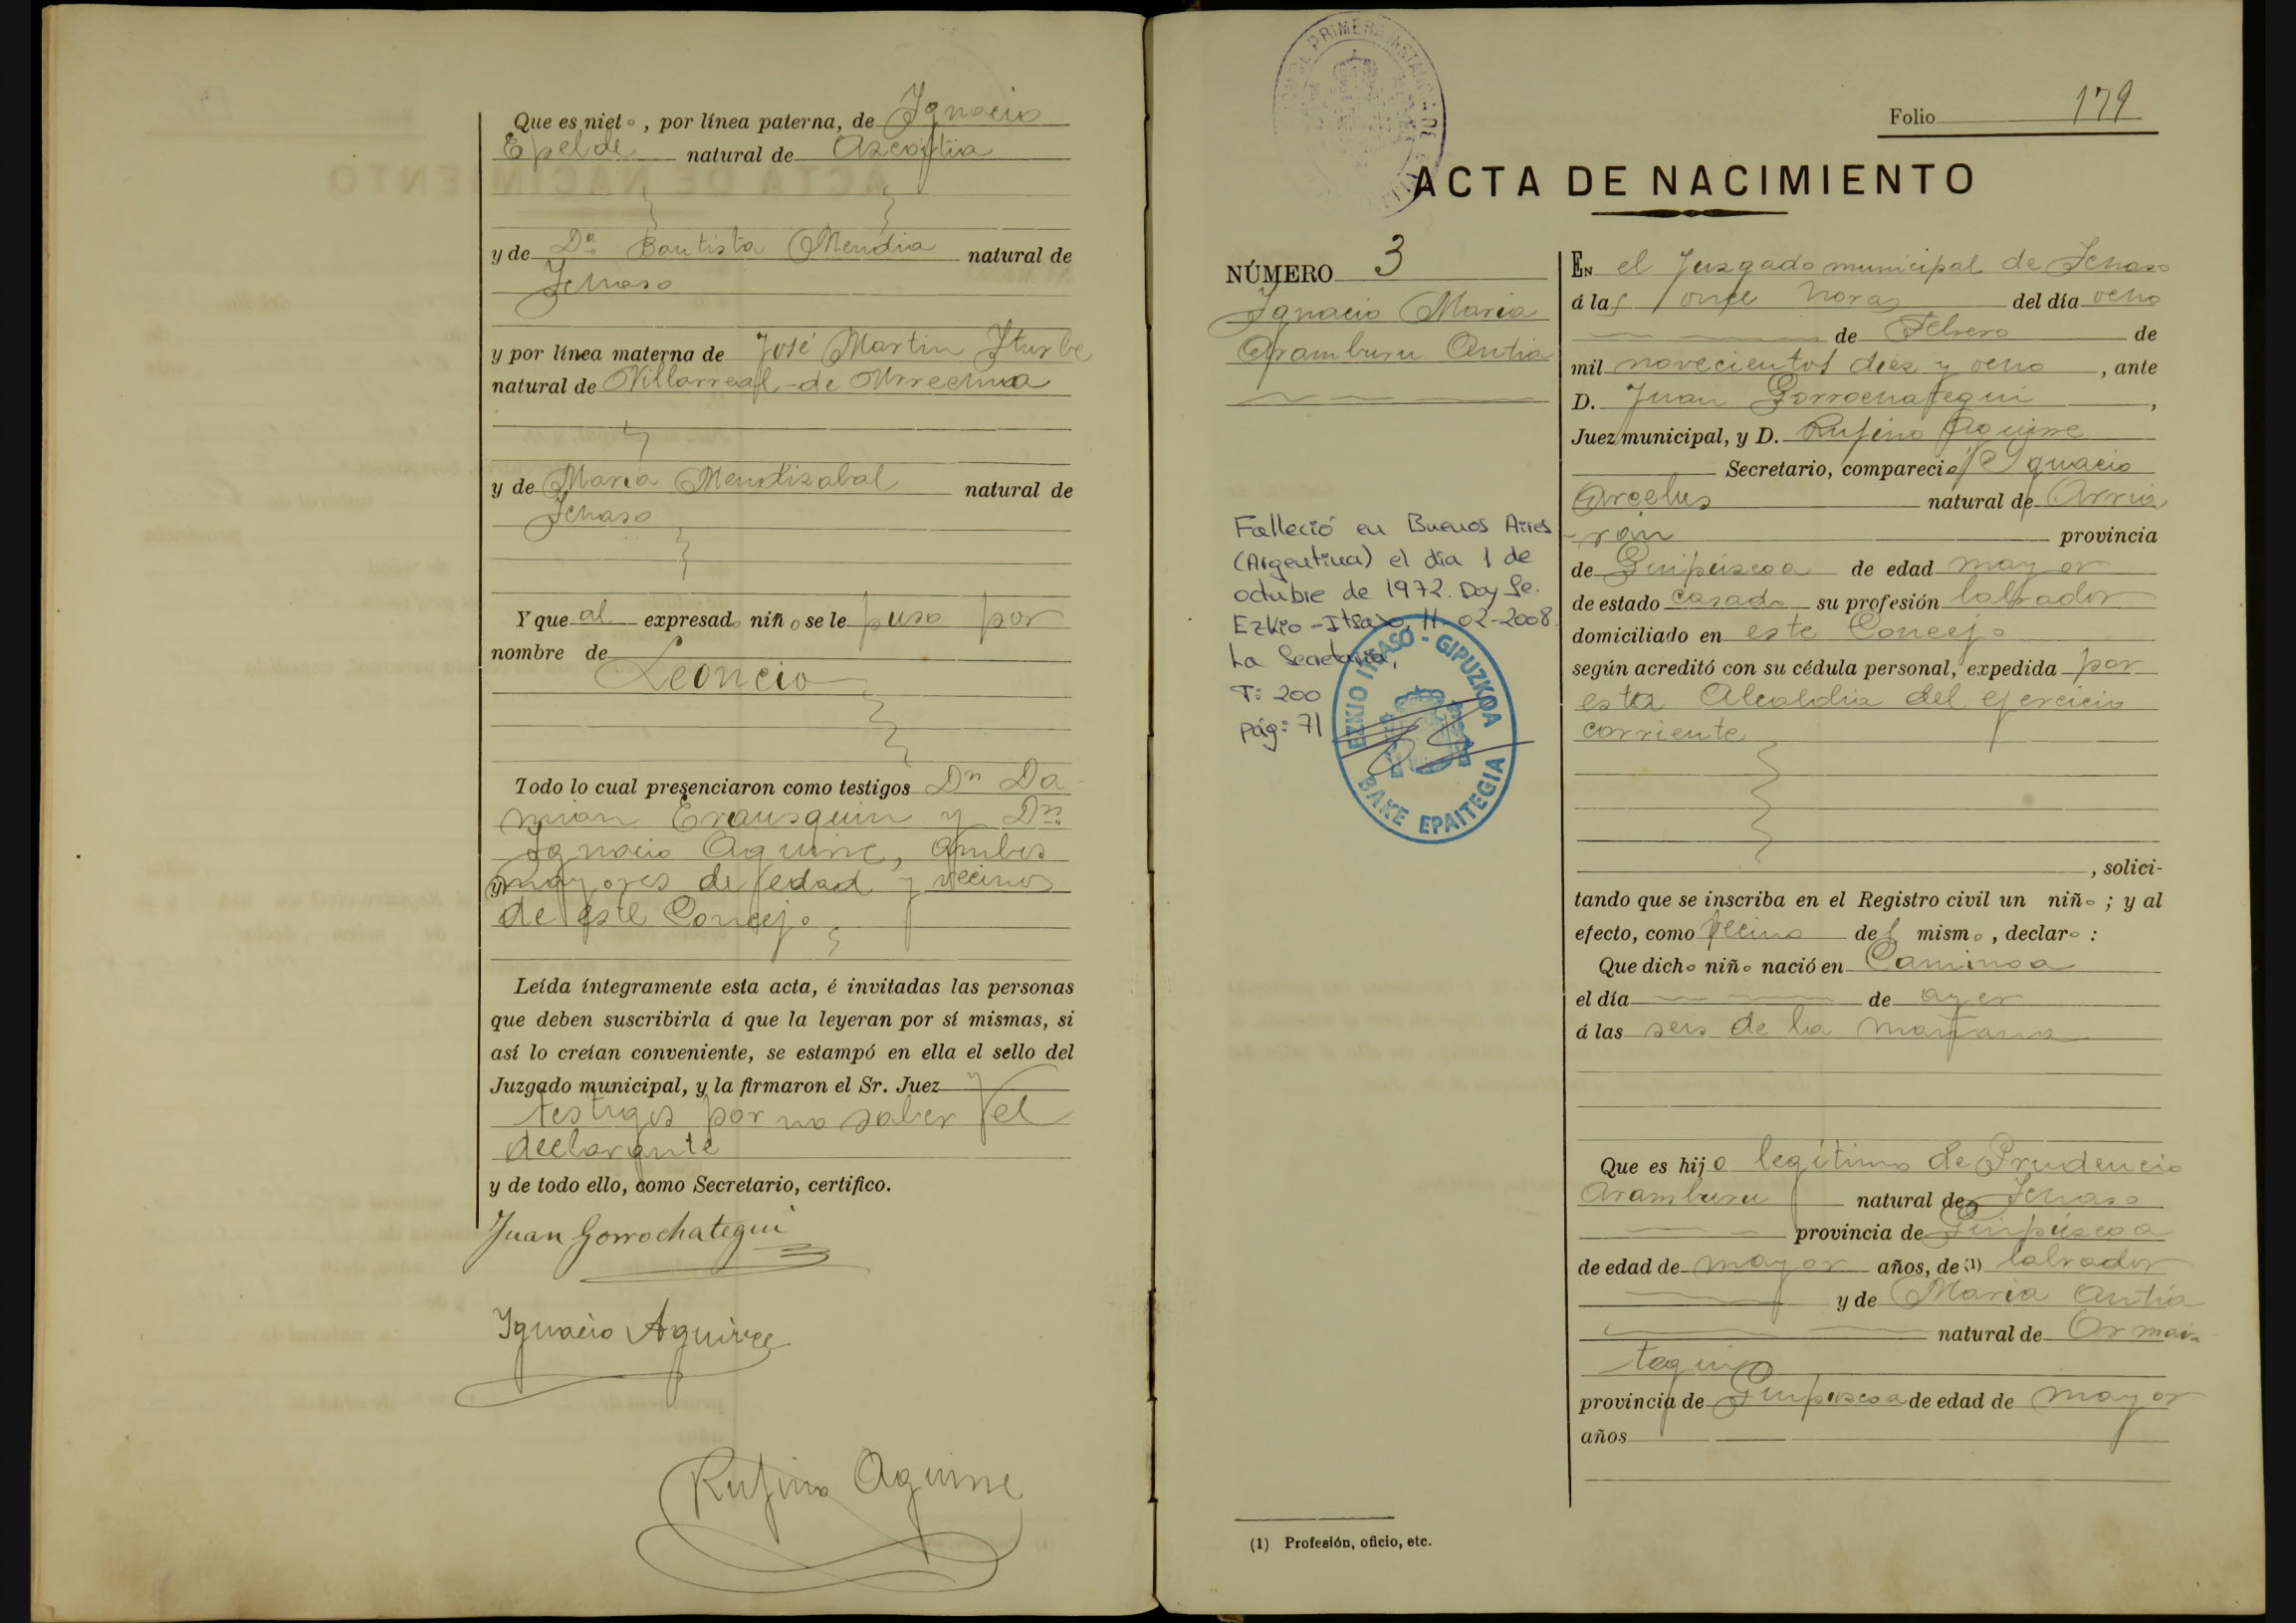 Que es nieto, por línea paterna, de Ignacio
Epelde natural de Azcoitia
y de Dª Bautista Mendia natural de
Ichaso
y por línea materna de José Martin Iturbe
natural de Villarreal-de Urrechua
y de Maria Mendizabal natural de
Ichaso
Y que al expresado niño se le puso por
nombre de
Leoncio
Todo lo cual presenciaron como testigos Dn Da
mian Erausquin y Dn
Ignacio Aguirre, ambos
mayores de edad y vecinos
de este Concejo
Leída íntegramente esta acta, é invitadas las personas
que deben suscribirla á que la leyeran por sí mismas, si
así lo creían conveniente, se estampó en ella el sello del
Juzgado municipal, y la firmaron el Sr. Juez y
testigos por no saber el
declarante
y de todo ello, como Secretario, certifico.
Juan Gorrochategui
Ignacio Aguirre
Rufino Aguirre
PRIMERA INSTANCIA
Folio 179
ACTA DE NACIMIENTO
NÚMERO 3
Ignacio Maria
Aramburu Antia
Falleció en Buenos Aires
(Argentina) el día 1 de
octubre de 1972. Doy fe.
Ezkio-Itsaso, 11-02-2008
La Secretaria,
T: 200
pág: 71
EZKIO ITSASO - GIPUZKOA
BAKE EPAITEGIA
EN el Juzgado municipal de Ichaso
á las once horas del día ocho
de Febrero de
mil novecientos diez y ocho, ante
D. Juan Gorrochategui,
Juez municipal, y D. Rufino Aguirre
Secretario, compareció Ignacio
Arcelus natural de Arria
-ran provincia
de Guipúzcoa de edad mayor
de estado casado su profesión labrador
domiciliado en este Concejo
según acreditó con su cédula personal, expedida por
esta Alcaldia del ejercicio
corriente
, solici-
tando que se inscriba en el Registro civil un niño; y al
efecto, como vecino del mismo, declaro:
Que dicho niño nació en Caminoa
el día de ayer
á las seis de la mañana
Que es hijo legítimo de Prudencio
Aramburu natural de Ichaso
provincia de Guipúzcoa
de edad de mayor años, de (1) labrador
y de Maria Antia
natural de Ormaiz
tegui
provincia de Guipúzcoa de edad de mayor
años
(1) Profesión, oficio, etc.